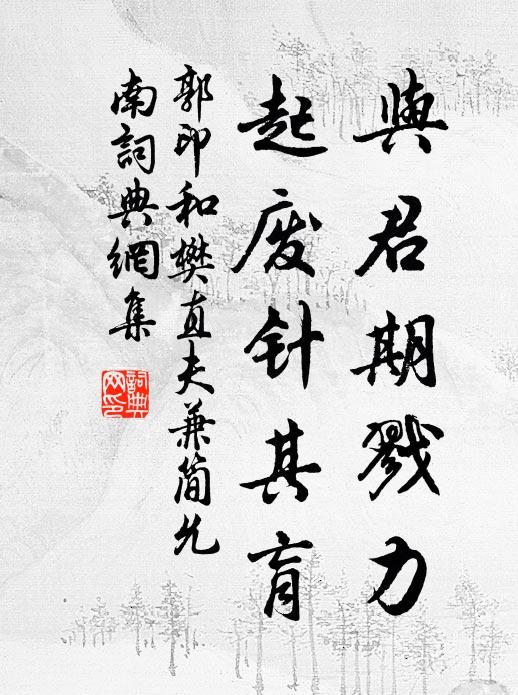 與君期戮力
起废针其肓
郭印和樊直夫兼简允
南詞典網集
詞典
网印